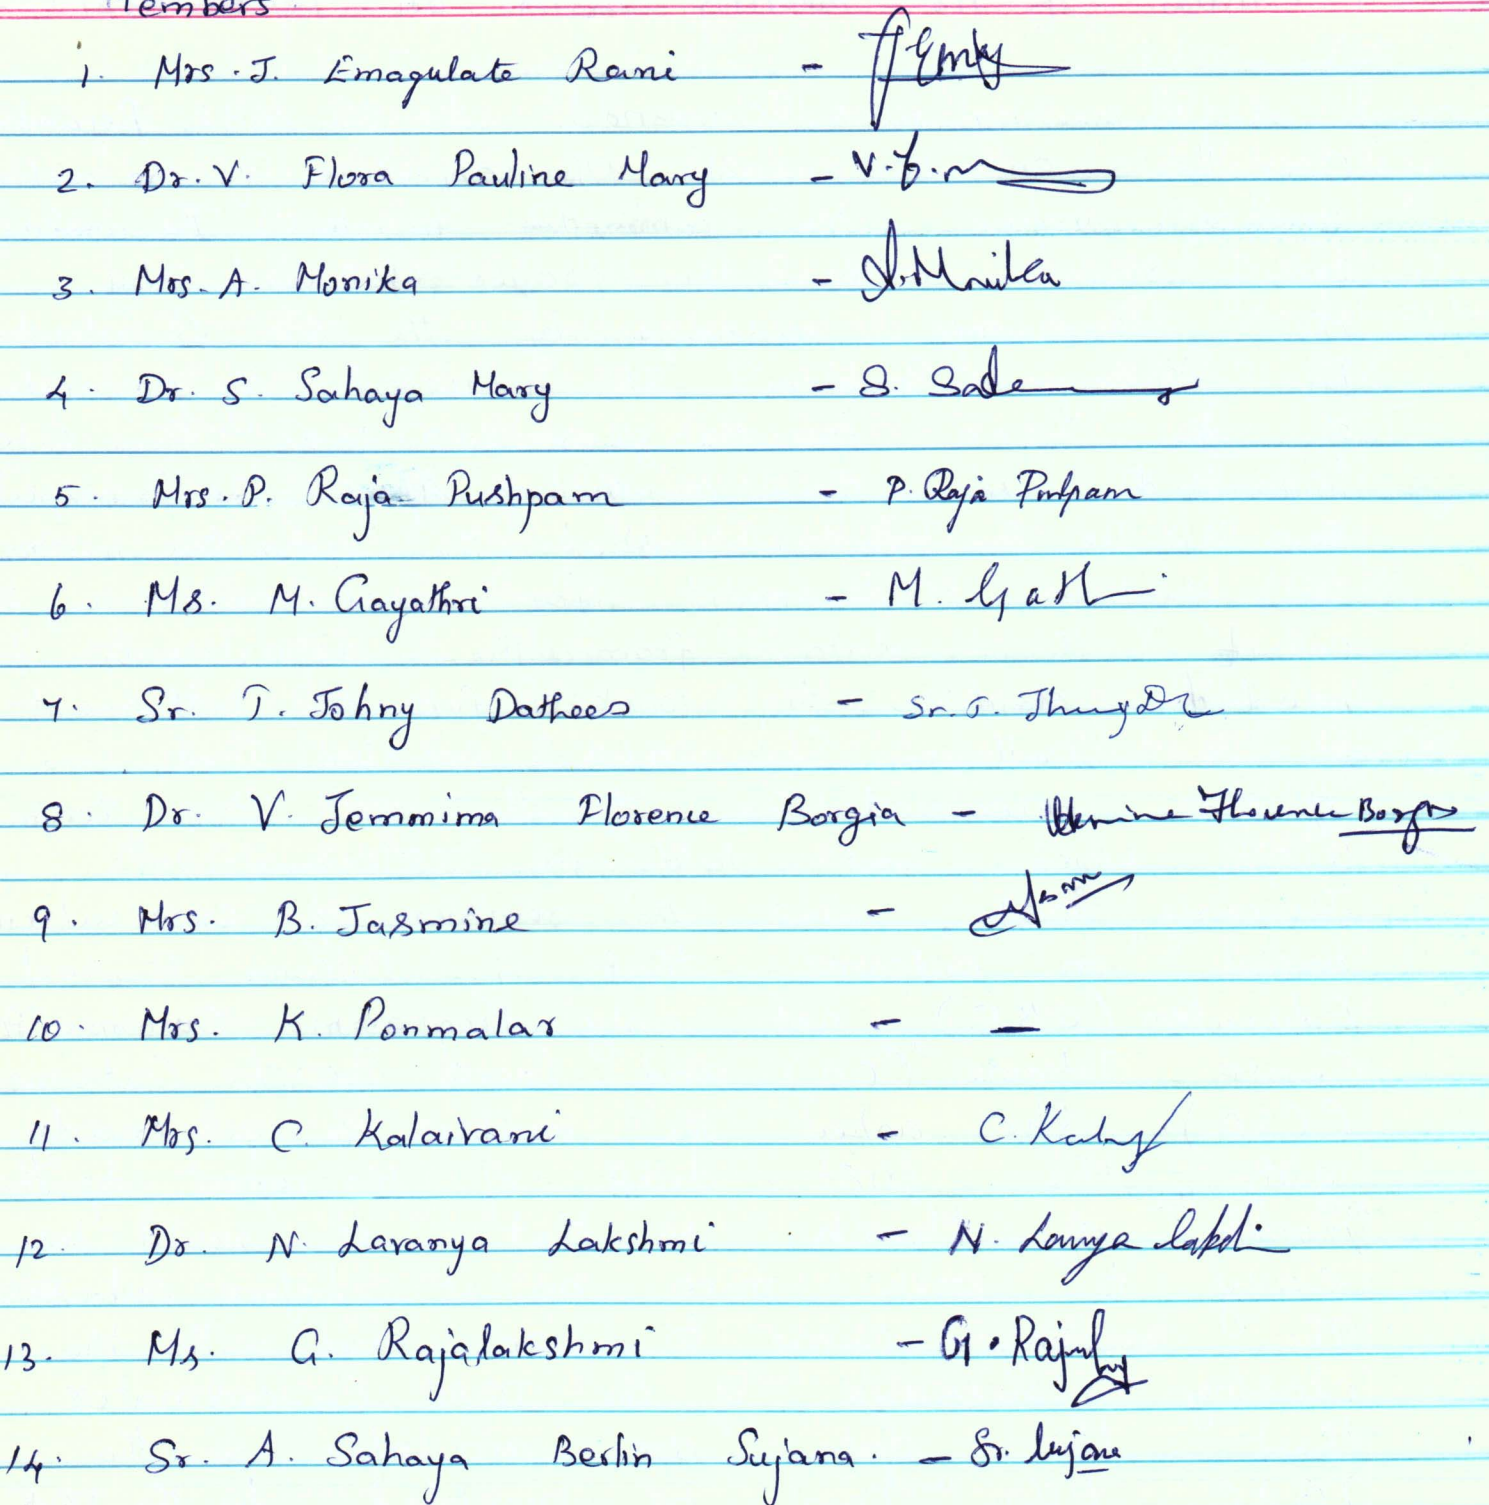 Members
1. Mrs. J. Emagulate Rani -
2. Dr. V. Flora Pauline Mary - V.
3. Mrs. A. Monika - A. Monika
4. Dr. S. Sahaya Mary - S.
5. Mrs. P. Raja Pushpam - P. Raja Pushpam
6. Ms. M. Gayathri - M.
7. Sr. T. Johny Dathees - Sr. T.
8. Dr. V. Jemmima Florence Borgia - Florence Borgia
9. Mrs. B. Jasmine -
10. Mrs. K. Ponmalar - -
11. Mrs. C. Kalaivani - C.
12. Dr. N. Lavanya Lakshmi - N.
13. Ms. G. Rajalakshmi - G.
14. Sr. A. Sahaya Berlin Sujana. - Sr. Sujana